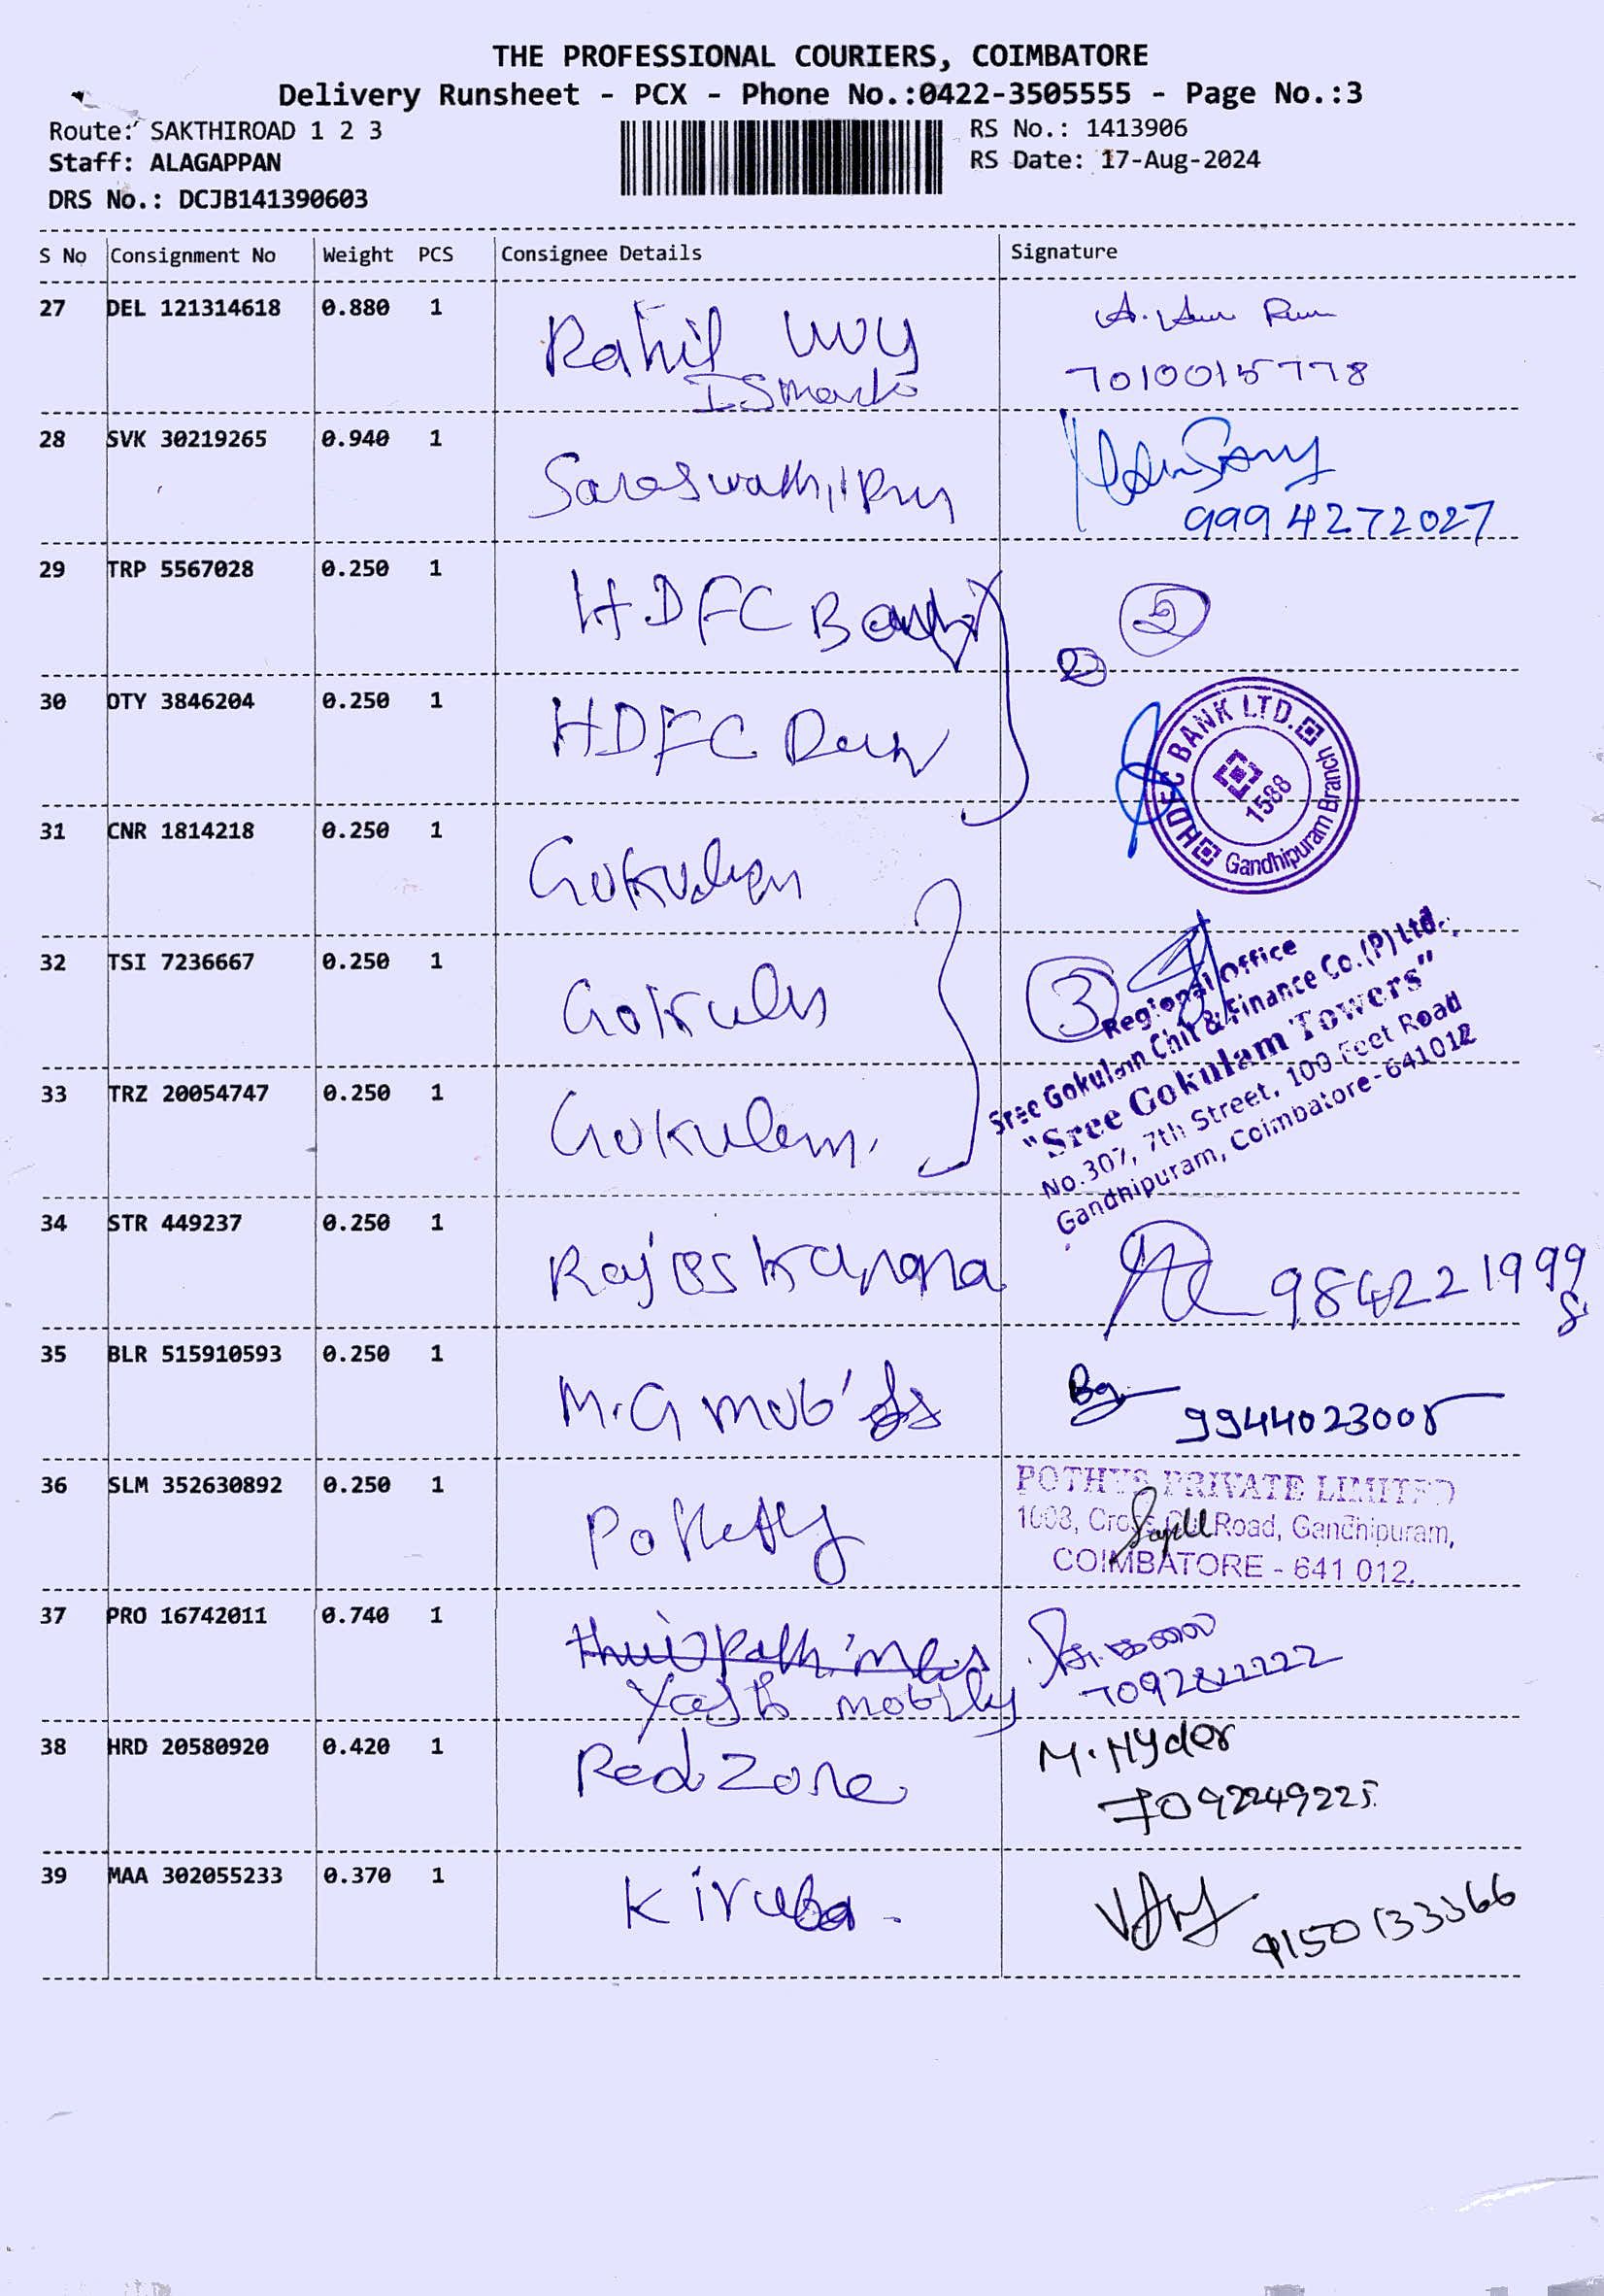 THE PROFESSIONAL COURIERS, COIMBATORE
Delivery Runsheet - PCX - Phone No.:0422-3505555 - Page No.:3
Route: SAKTHIROAD 1 2 3
RS No.: 1413906
Staff: ALAGAPPAN
RS Date: 17-Aug-2024
DRS No.: DCJB141390603
S No Consignment No Weight PCS Consignee Details Signature
27 DEL 121314618 0.880 1
7010015778
28 SVK 30219265 0.940 1
9994272027
29 TRP 5567028 0.250 1 HDFC Bank
30 OTY 3846204 0.250 1 HDFC
HDFC BANK LTD.
1588
Gandhipuram Branch
31 CNR 1814218 0.250 1 Gokulam
32 TSI 7236667 0.250 1 Gokulam
3
Regional Office
Sree Gokulam Chit & Finance Co.(P) Ltd.,
"Sree Gokulam Towers"
No.307, 7th Street, 100 Feet Road
Gandhipuram, Coimbatore-641012
33 TRZ 20054747 0.250 1 Gokulam.
34 STR 449237 0.250 1
9842219998
35 BLR 515910593 0.250 1 M.G
9944023005
36 SLM 352630892 0.250 1
POTHYS PRIVATE LIMITED
1008, Cross Cut Road, Gandhipuram,
COIMBATORE - 641 012.
37 PRO 16742011 0.740 1
38 HRD 20580920 0.420 1 Red Zone M. Hyder
7092249225
39 MAA 302055233 0.370 1 Kiruba
9150133366